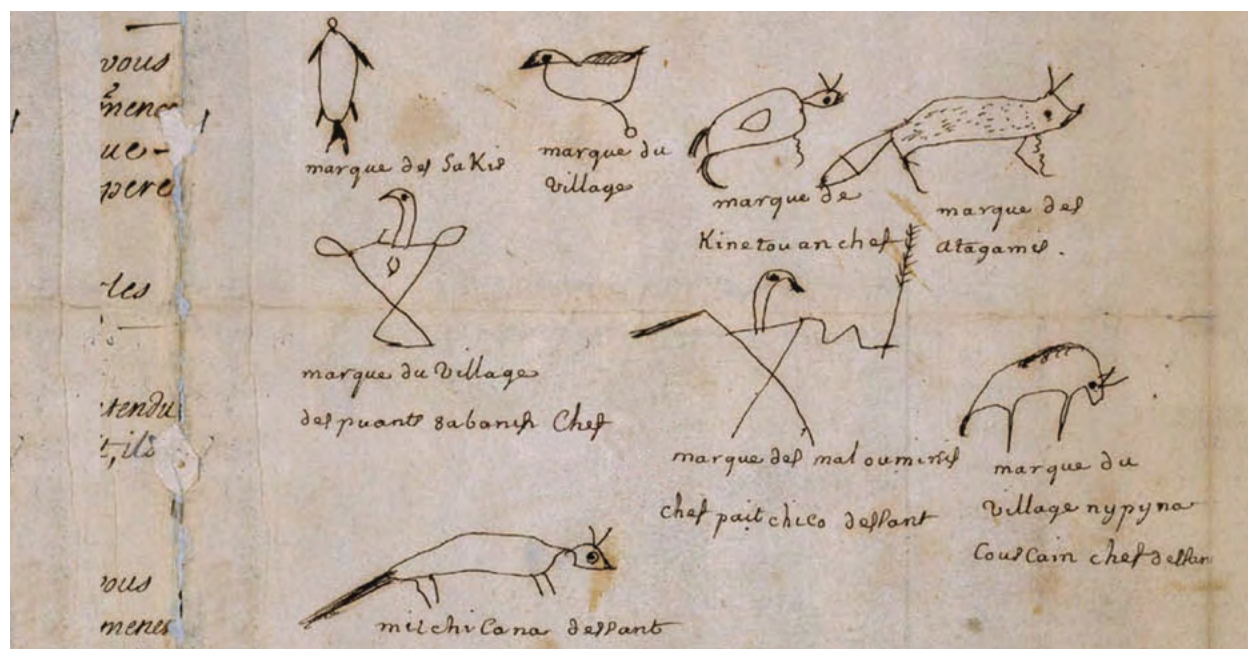 vous
menenc
ue-
pere
les
tendu
t, ils
vous
menes
marque des Sakis
marque du
village
marque de
Kinetouan chef
marque des
atagamis.
marque du village
des puants sabanis Chef
marque des maloumines
chef pait chico dessant
marque du
village nypyna
Couscain chef dessan
milchicana dessant